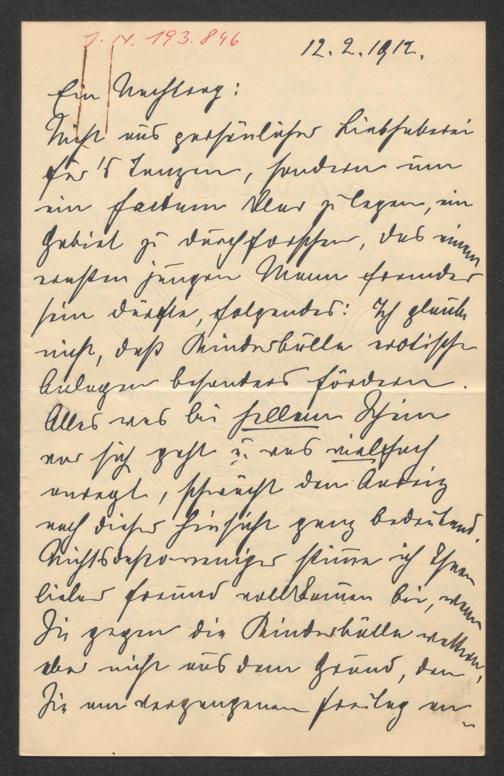 J. N. 193.846
12.2.1912.
Ein Nachtrag:
Nicht aus persönlicher Liebhaberei
für's Tanzen, sondern um
ein factum klar zu legen, ein
Gebiet zu durchforschen, das einem
ernsten jungen Mann fremder
sein dürfte, folgendes: Ich glaube
nicht, daß Kinderbälle erotische
Anlagen besonders fördern.
Alles was bei hellem Schein
vor sich geht u. was vielfach
anregt, schwächt den Anreiz
nach dieser Hinsicht ganz bedeutend.
Nichtsdestoweniger stimme ich Ihnen
lieber Freund vollkommen bei, wenn
Sie gegen die Kinderbälle wettern,
aber nicht aus dem Grund, den
Sie am vergangenen Freitag an-